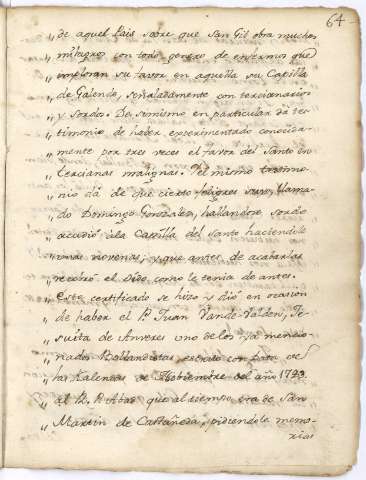 64
„ de aquel Pais sobre que San Gil obra muchos
„ milagros con todo genero de enfermos que
„ imploran su favor en aquella su Capilla
„ de Galende, señaladamente con tercionarios
„ y sordos. De simismo en particular dà tes-
„ timonio de haber experimentado conocida-
„ mente por tres veces el favor del Santo en
„ tercianas malignas. Y el mismo testimo-
„ nio dà de que cierto feligres suyo, llama-
„ do Domingo Gonzalez, hallandose sordo
„ acudiò à la Capilla del Santo haciendole
„ unas novenas, y que antes de acabarlas
„ recobrò el oìdo como le tenia de antes.
„ Este certificado se hizo y diò en ocasion
„ de haber el P. Juan Vande-Velden, Je-
„ suita de Anveres uno de los ya mencio-
„ nados Bollandistas escrito con data de
„ las Kalendas de Nobiembre del año 1743
„ al R. P. Abad que al tiempo era de San
„ Martin de Castañeda, pidiendole memo-
rias